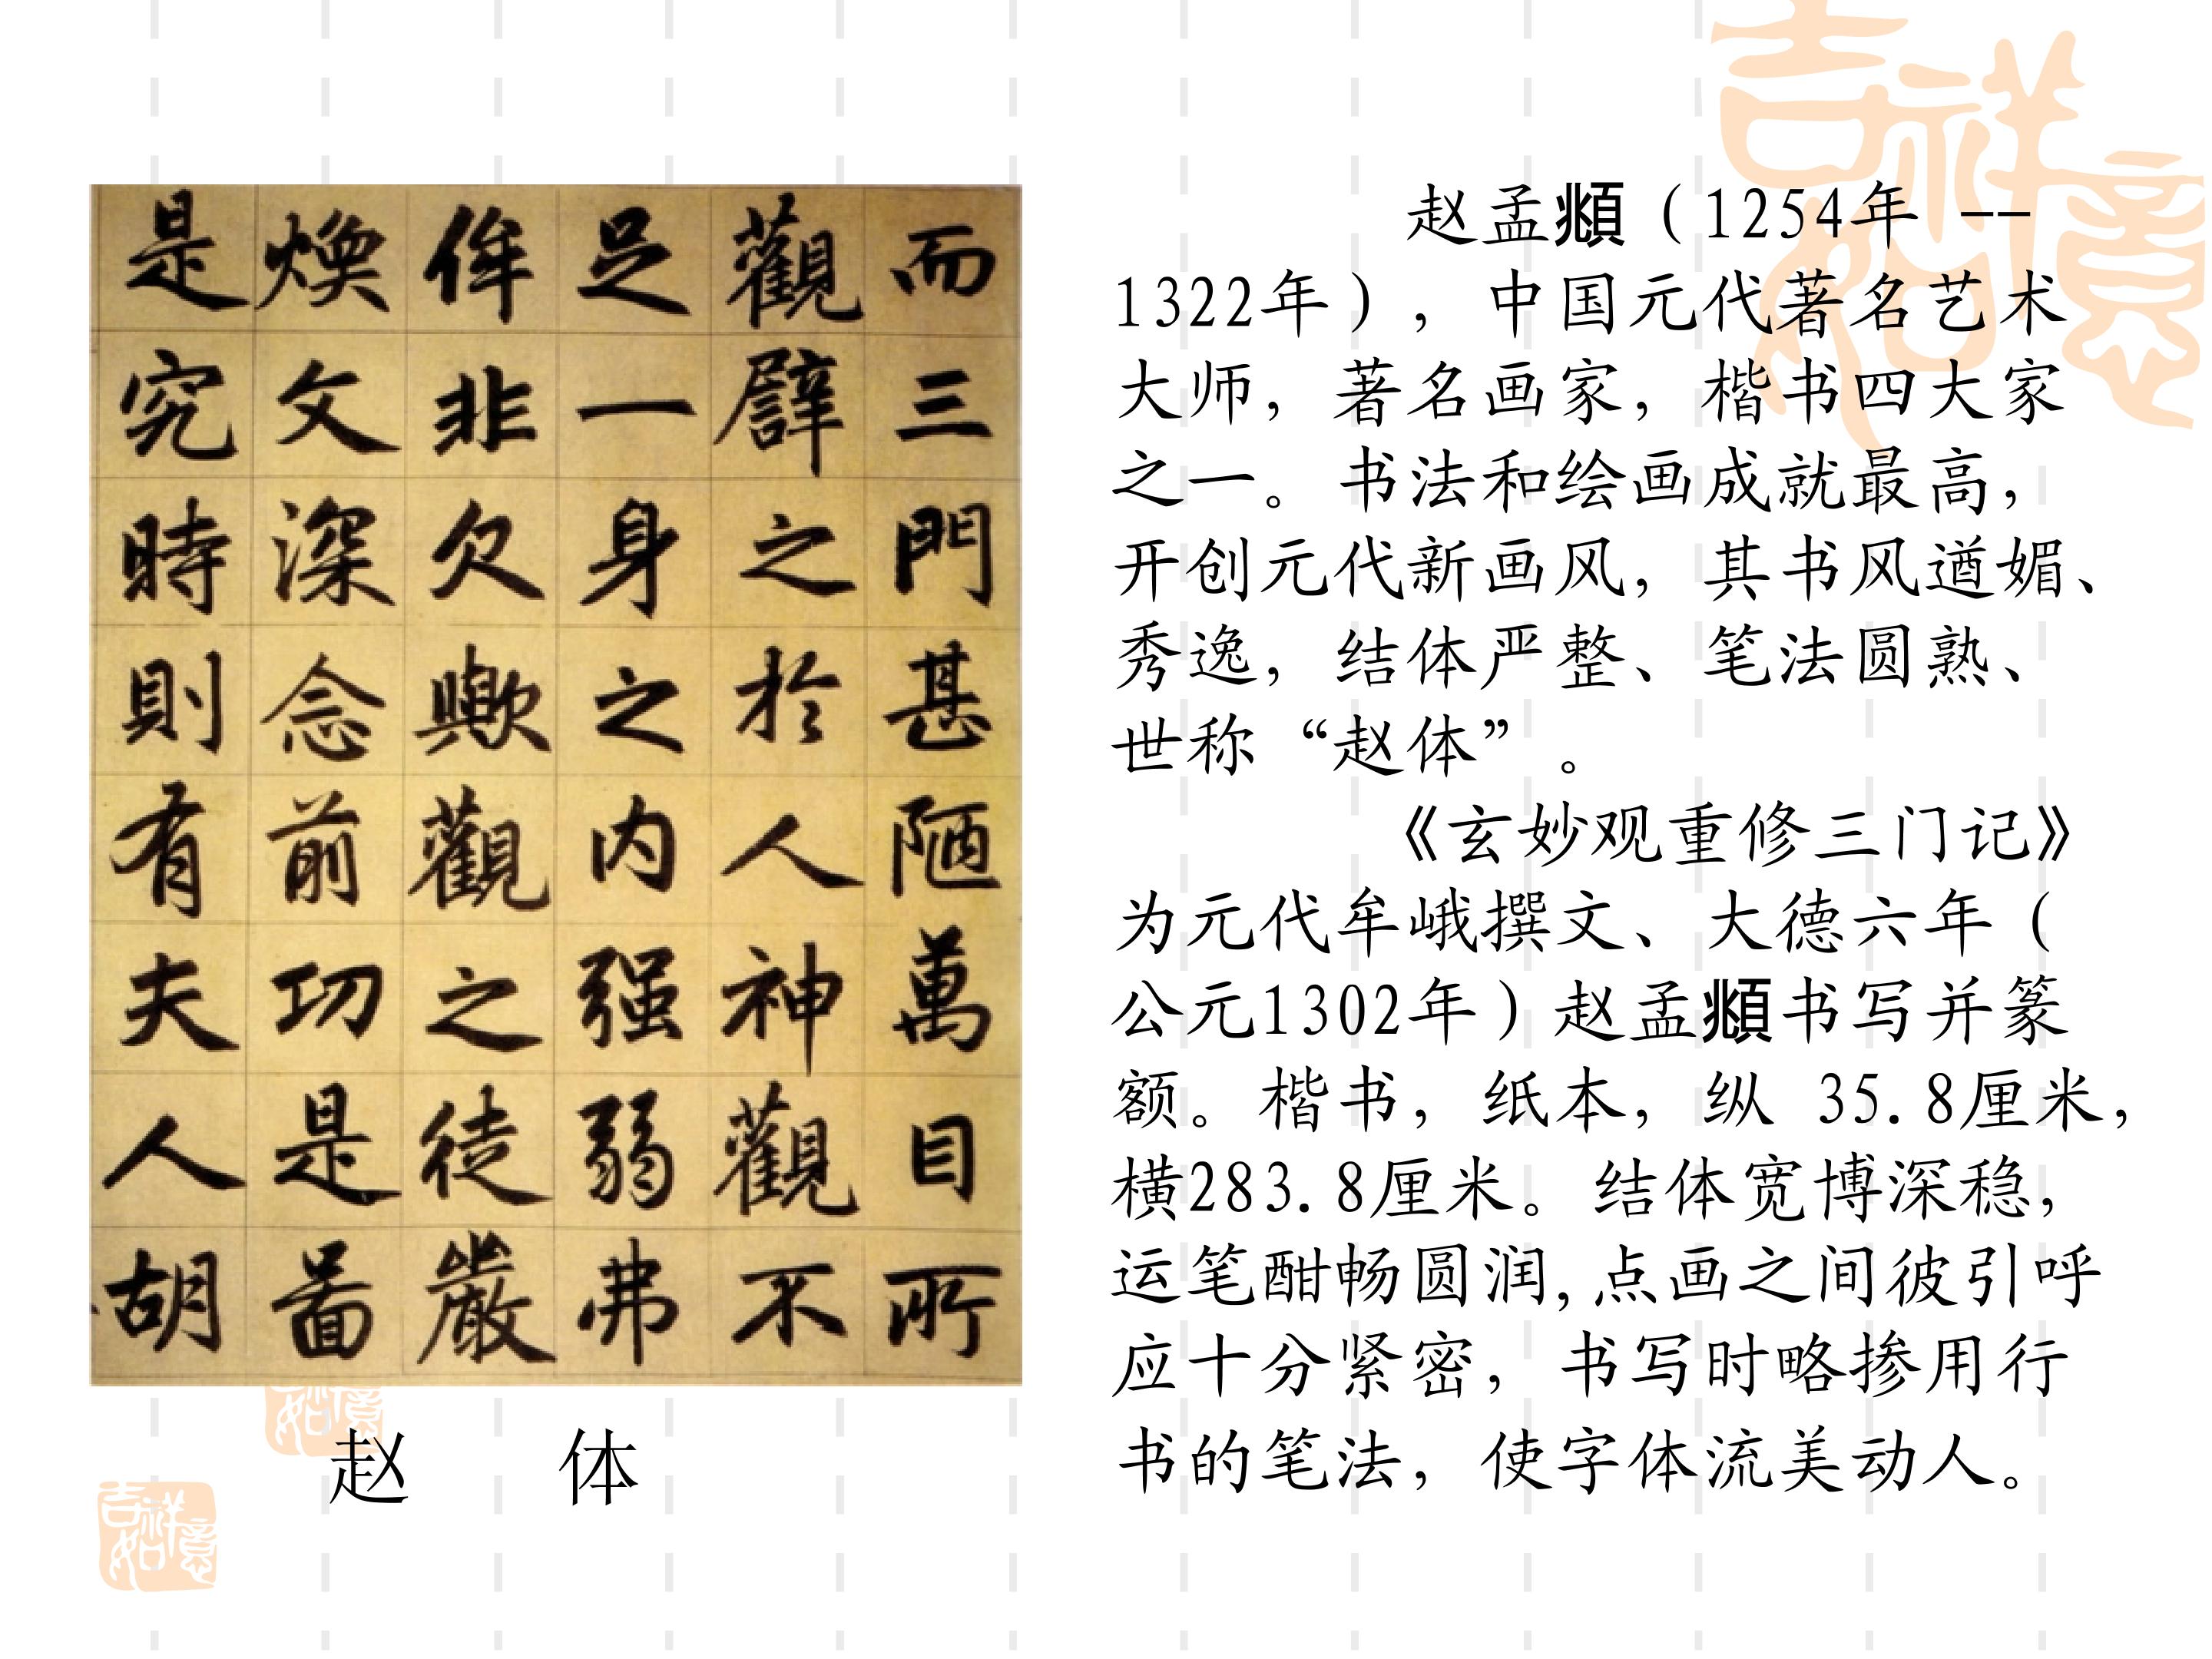 而三門甚陋萬目所
觀譬之於人神觀不
足一身之内强弱弗
侔非欠歟觀之徒嚴
焕文深念前功是啚
是究時則有夫人胡
赵 体
赵孟頫（1254年 --
1322年），中国元代著名艺术
大师，著名画家，楷书四大家
之一。书法和绘画成就最高，
开创元代新画风，其书风遒媚、
秀逸，结体严整、笔法圆熟、
世称“赵体”。
《玄妙观重修三门记》
为元代牟峨撰文、大德六年（
公元1302年）赵孟頫书写并篆
额。楷书，纸本，纵 35.8厘米，
横283.8厘米。结体宽博深稳，
运笔酣畅圆润,点画之间彼引呼
应十分紧密，书写时略掺用行
书的笔法，使字体流美动人。
吉祥如意
吉祥如意
如意